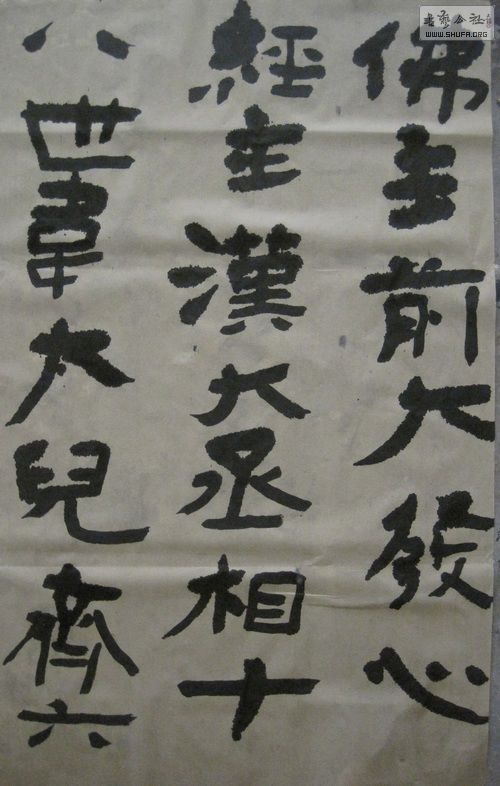 佛主前大發心
經主漢大丞相十
八世韋大兒齊六
書藝公社
WWW.SHUFA.ORG